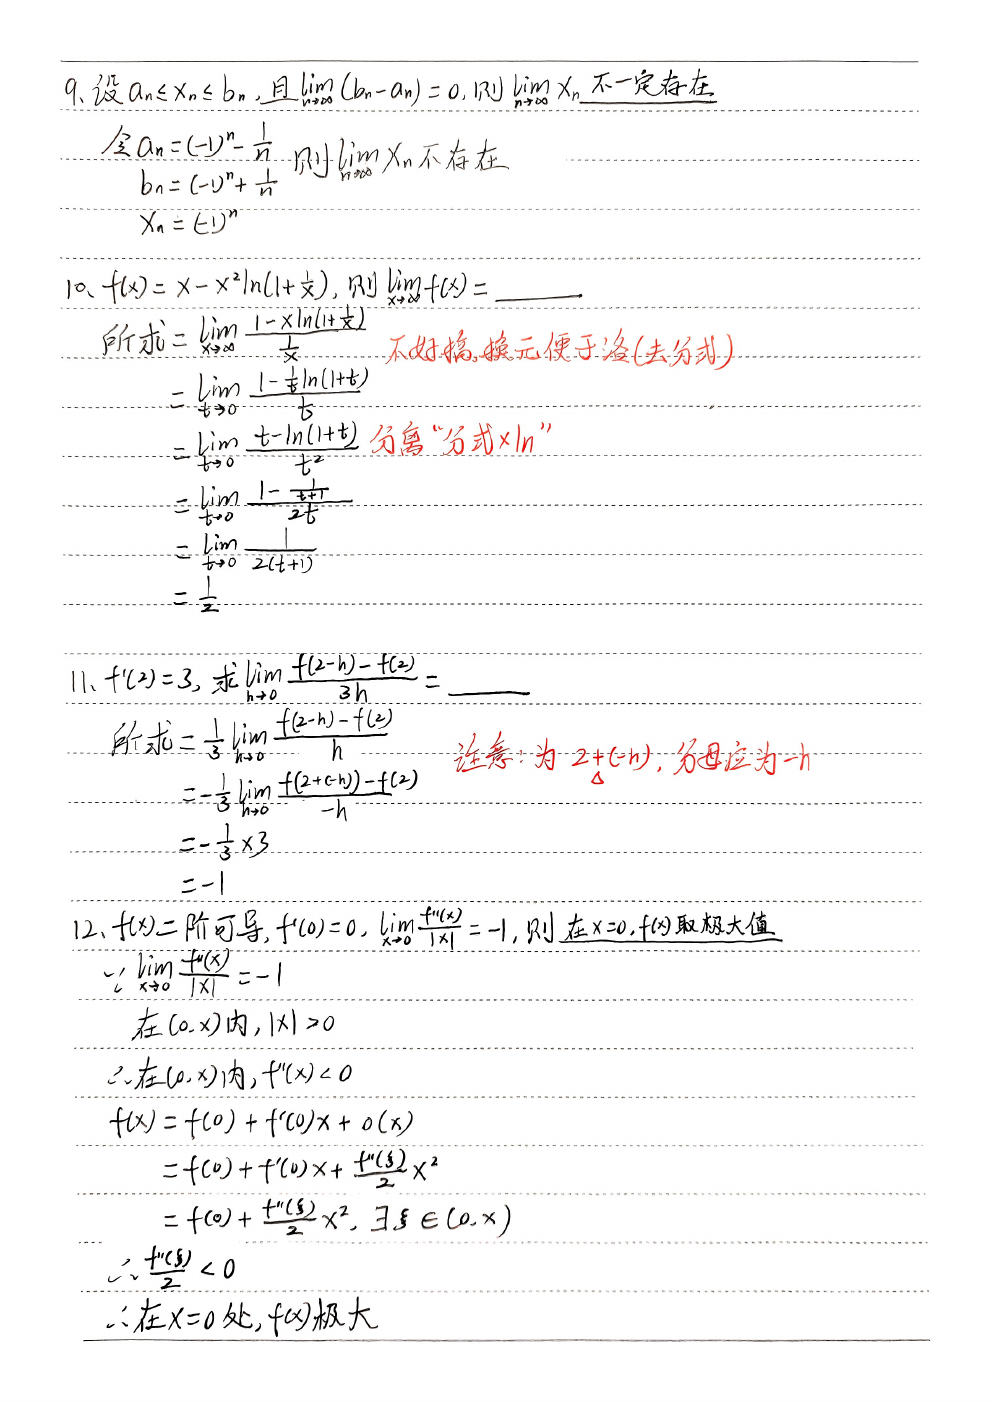 9、设 aₙ≤xₙ≤bₙ,且 lim(n→∞)(bₙ-aₙ)=0,则 lim(n→∞) xₙ 不一定存在
令 aₙ=(-1)ⁿ-1/n 则 lim(n→∞) xₙ 不存在
bₙ=(-1)ⁿ+1/n
xₙ=(-1)ⁿ
10、f(x)=x-x²ln(1+1/x),则 lim(x→∞) f(x)=______
所求=lim(x→∞) (1-xln(1+1/x))/(1/x) 不好搞。换元便于洛(去分式)
=lim(t→0) (1-1/t ln(1+t))/t
=lim(t→0) (t-ln(1+t))/t² 分离“分式×ln”
=lim(t→0) (1-1/(t+1))/2t
=lim(t→0) 1/(2(t+1))
=1/2
11、f'(2)=3,求 lim(h→0) (f(2-h)-f(2))/3h=______
所求=1/3 lim(h→0) (f(2-h)-f(2))/h 注意:为 2+(-h),分母应为-h
=-1/3 lim(h→0) (f(2+(-h))-f(2))/-h
=-1/3×3
=-1
12、f(x)二阶可导,f'(0)=0,lim(x→0) f''(x)/|x|=-1,则 在x=0,f(x)取极大值
∵ lim(x→0) f''(x)/|x|=-1
在(0,x)内,|x|>0
∴在(0,x)内,f''(x)<0
f(x)=f(0)+f'(0)x+o(x)
=f(0)+f'(0)x+f''(ξ)/2 x²
=f(0)+f''(ξ)/2 x², ∃ξ∈(0,x)
∴f''(ξ)/2<0
∴在x=0处,f(x)极大